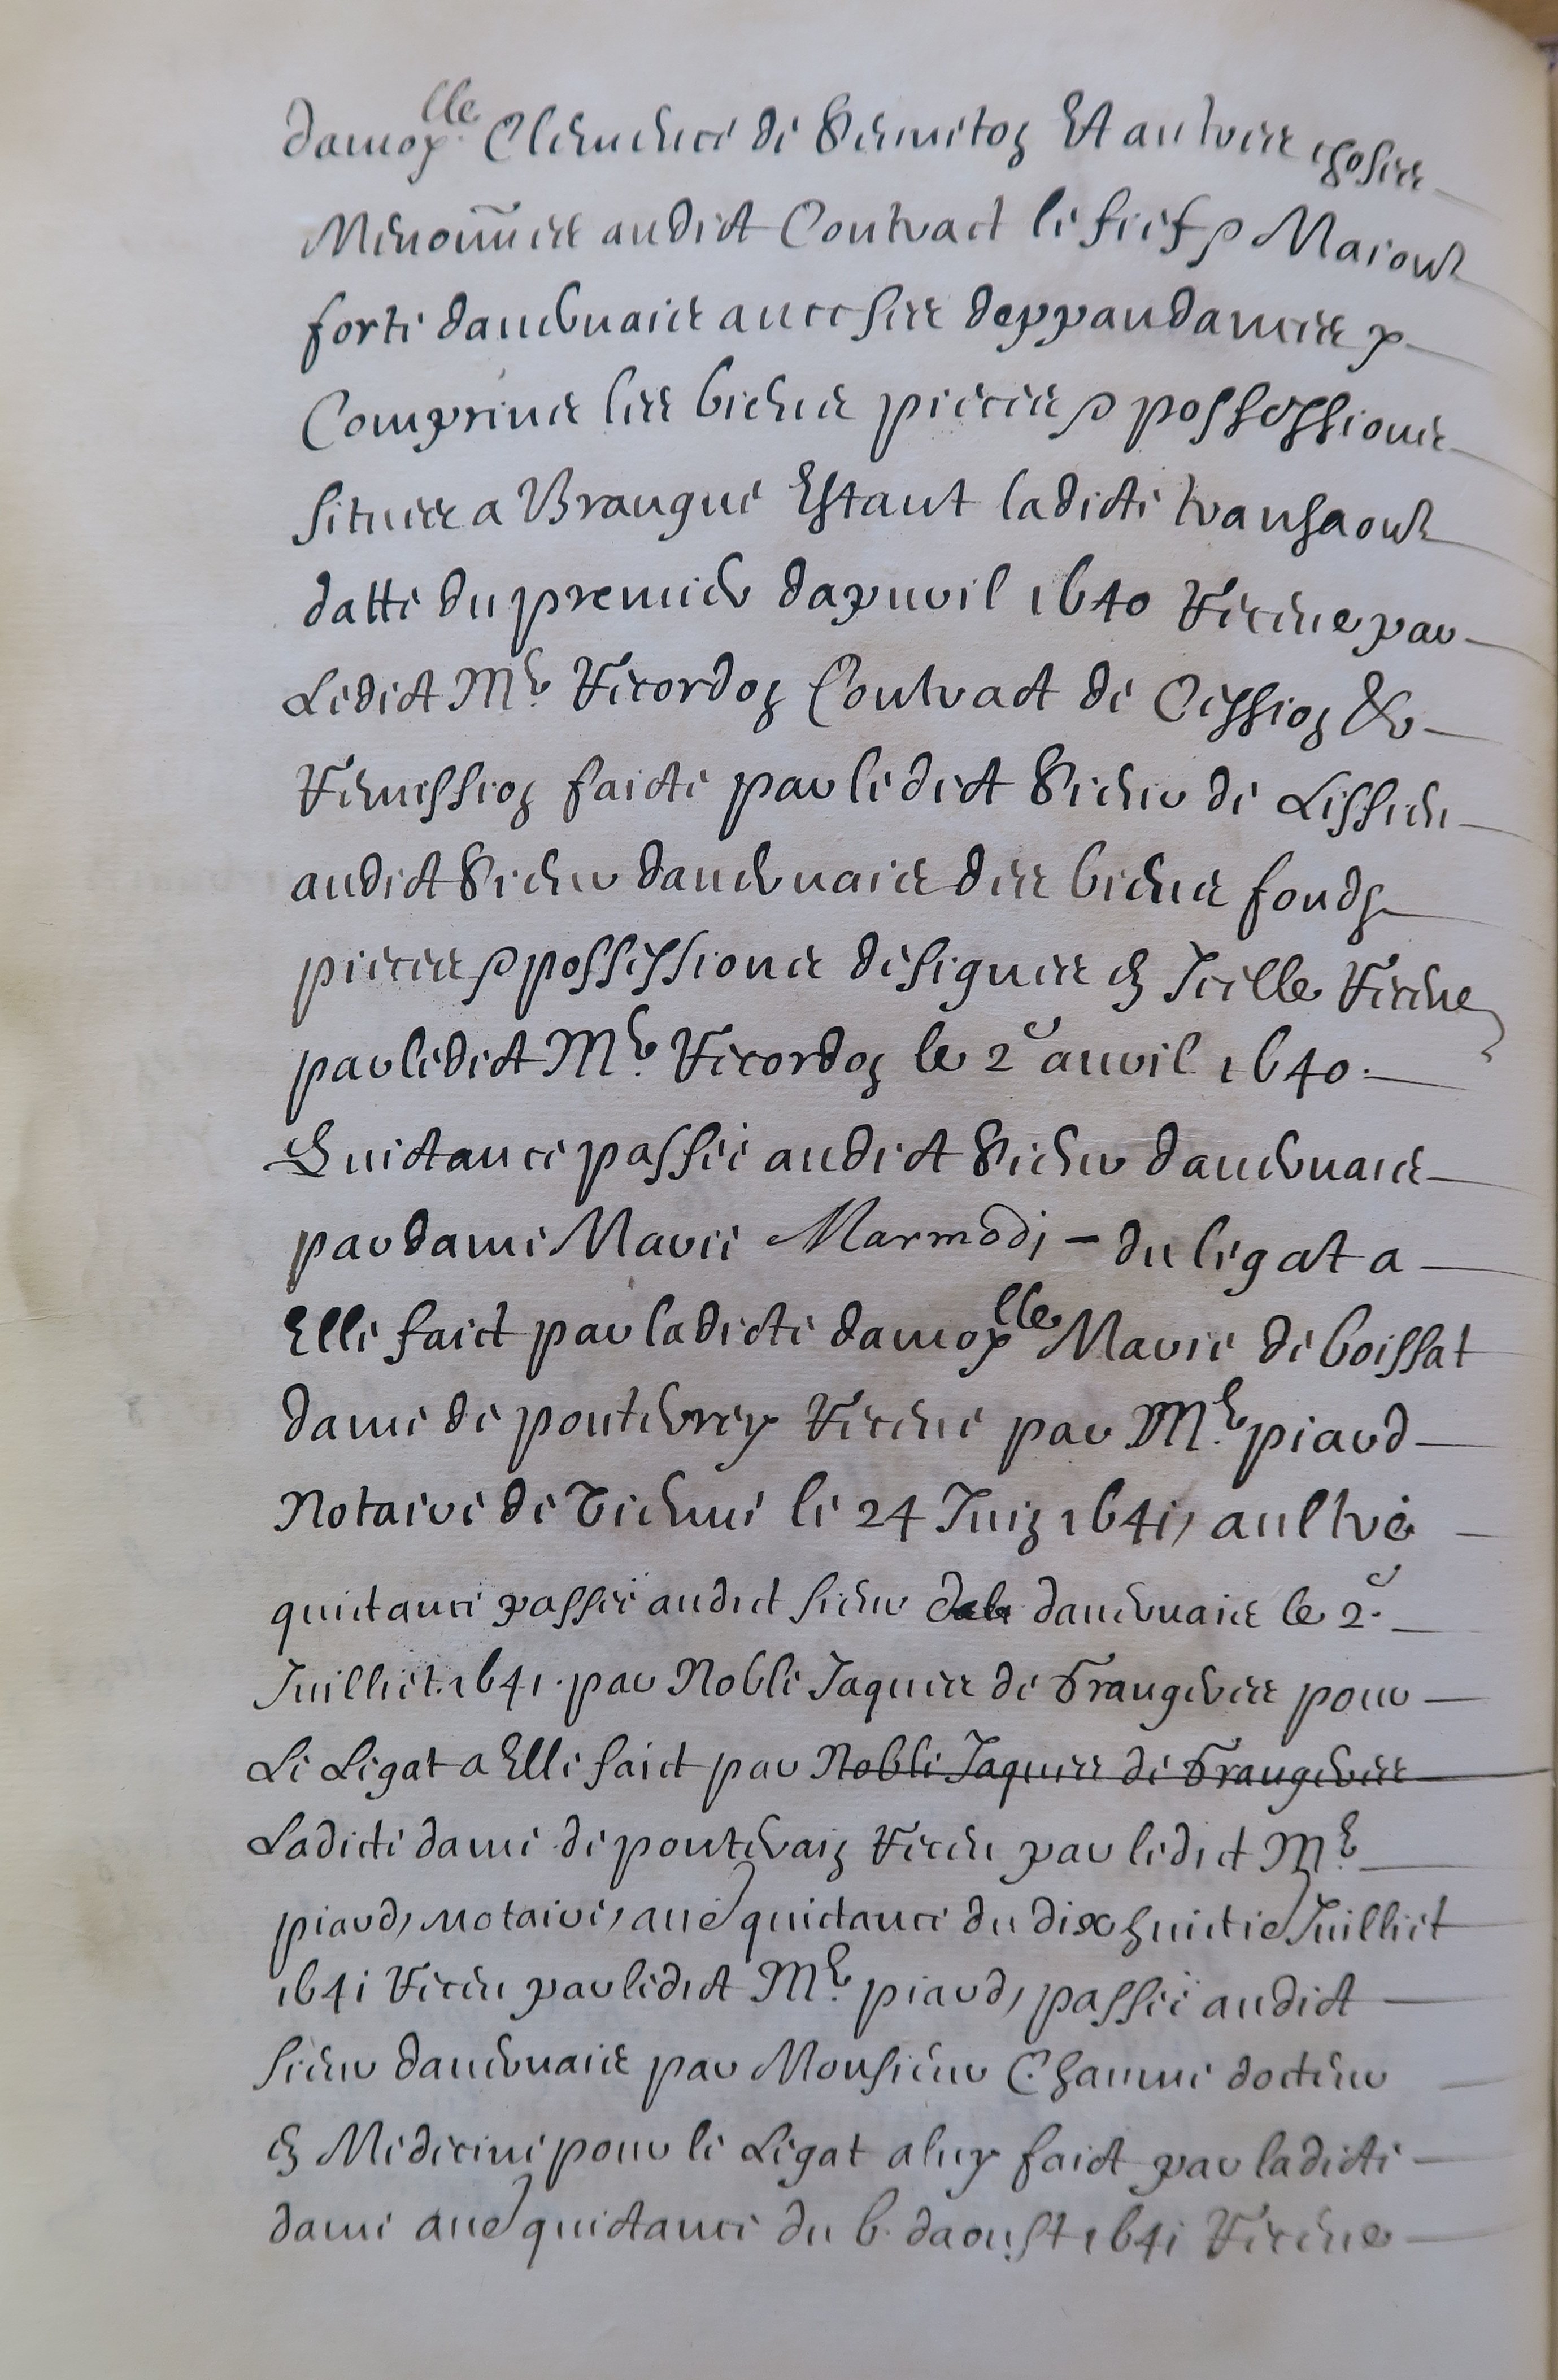 damoy.lle Clemence de Sermeton Et aultres choses
Menoñees audict Contract le fief & Maison
forte damburnaies avec ses deppandances y
Comprins les biens pieces & possessions
situees a Brangue Estant ladicte transaon
datte du premier dapvril 1640 Receue par
Ledict Mr. Recordon Contract de Cession &
Remission faicte par ledict Sieur de Lissieu
audict Sieur dauburnaies des biens fonds
pieces & possessions designees en Icelle Receue
par ledict Mr. Recordon le 2e avril 1640.
Quictance passée audict Sieur dauburnaies
par dame Marie Marmodi – du legat a
Elle faict par ladicte damoylle Marie de boissat
dame de pontevrey Receue par Mr. piard
Notaire de Vienne le 24 Juin 1641, aultre
quictance passée audict sieur dauburnaies le 2e.
Juilliet 1641. par Noble Jaques de Frangeres pour
Le Legat a Elle faict par Noble Jaques de Frangeres
Ladicte dame de pontevrain Receu par ledict Mr.
piard, notaire, aue quictance du dix huictie Juilliet
1641 Receu par ledict Mr. piard, passée audict
sieur dauburnaies par Monsieur Chamne docteur
en Medecine pour le Legat a luy faict par ladicte
dame aue quictance du 6. daoust 1641 Receue